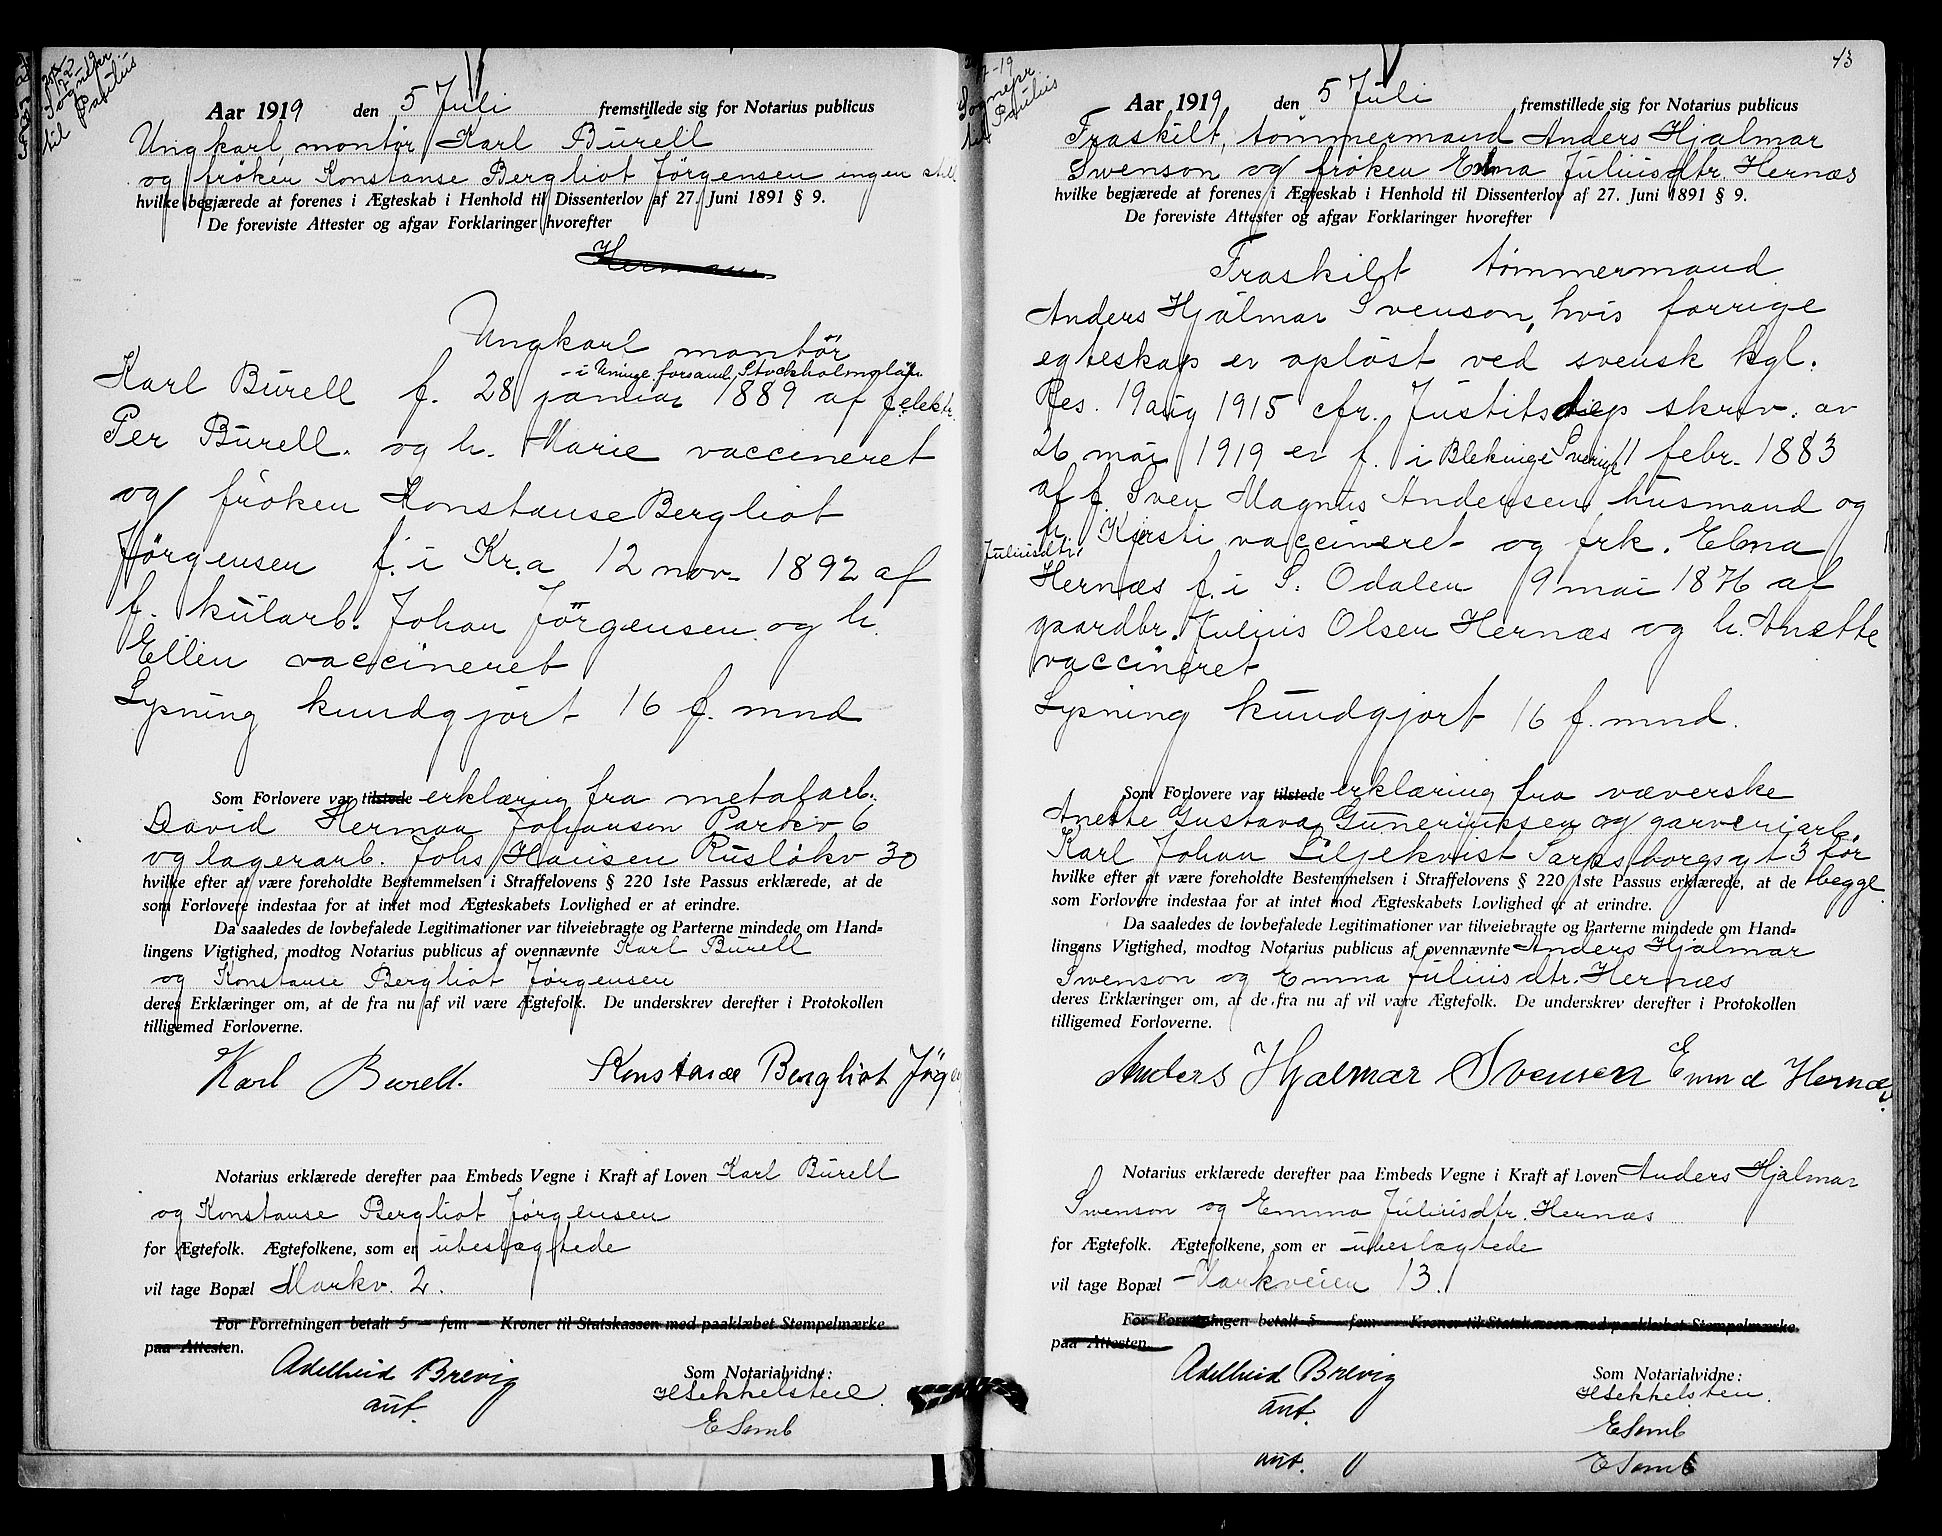 22/7-19
Sognepr.
til Paulus
Aar 1919 den 5 Juli fremstillede sig for Notarius publicus
Ungkarl, montør Karl Burell
og frøken Konstanse Bergliot Jørgensen ingen still.
hvilke begjærede at forenes i Ægteskab i Henhold til Dissenterlov af 27. Juni 1891 § 9.
De foreviste Attester og afgav Forklaringer hvorefter
Ungkarl montör
- i Uninge forsaml, Stockholmslän
Karl Burell f. 28 januar 1889 af f. elektr.
Per Burell. og h. Marie vaccineret
og fröken Konstanse Bergliot
Jörgensen f. i Kr.a 12 nov. 1892 af
f. kularb. Johan Jörgensen og h.
Ellen vaccineret
Lysning kundgjört 16 f. mnd
Som Forlovere var tilstede erklæring fra metalarb.
David Herman Johansen Parkv 6
og lagerarb. Johs Hansen Rusløkv 30
hvilke efter at være foreholdte Bestemmelsen i Straffelovens § 220 1ste Passus erklærede, at de
som Forlovere indestaa for at intet mod Ægteskabets Lovlighed er at erindre.
Da saaledes de lovbefalede Legitimationer var tilveiebragte og Parterne mindede om Hand=
lingens Vigtighed, modtog Notarius publicus af ovennævnte Karl Burell
og Konstanse Bergliot Jørgensen
deres Erklæringer om, at de fra nu af vil være Ægtefolk. De underskrev derefter i Protokollen
tilligemed Forloverne.
Karl Burell. Konstanse Bergliot Jørgen
Notarius erklærede derefter paa Embeds Vegne i Kraft af Loven Karl Burell
og Konstanse Bergliot Jørgensen
for Ægtefolk. Ægtefolkene, som er ubeslægtede
vil tage Bopæl Markv. 2.
For Forretningen betalt 5 — fem — Kroner til Statskassen med paaklæbet Stempelmærke
paa Attesten.
Adelheid Brevig
aut.
Som Notarialvidne:
HSekkelsteen
E Somb
43
7-19
Sognepr.
til Paulus
Aar 1919 den 5 Juli fremstillede sig for Notarius publicus
Fraskilt, tømmermand Anders Hjalmar
Swenson og frøken Emma Juliusdtr. Hernæs
hvilke begjærede at forenes i Ægteskab i Henhold til Dissenterlov af 27. Juni 1891 § 9.
De foreviste Attester og afgav Forklaringer hvorefter
Fraskilt tømmermand
Anders Hjalmar Svenson, hvis forrige
egteskap er opløst ved svensk kgl.
Res. 19 aug 1915 cfr. Justitsdep skriv. av
26 mai 1919 er f. i Blekinge Sverige 11 febr. 1883
af f. Sven Magnus Andersen, husmand og
h. Kjersti vaccineret og frk. Elma
Juliusdtr.
Hernæs f. i S. Odalen 9 mai 1876 af
gaardbr. Julius Olsen Hernæs og h. Anette
vaccineret
Lysning kundgjort 16 f. mnd.
Som Forlovere var tilstede erklæring fra væverske
Anette Gustava Guneriussen og garveriarb.
Karl Johan Liljekvist Sarpsborggt 3 før
begge
hvilke efter at være foreholdte Bestemmelsen i Straffelovens § 220 1ste Passus erklærede, at de
som Forlovere indestaa for at intet mod Ægteskabets Lovlighed er at erindre.
Da saaledes de lovbefalede Legitimationer var tilveiebragte og Parterne mindede om Hand=
lingens Vigtighed, modtog Notarius publicus af ovennævnte Anders Hjalmar
Swenson og Emma Juliusdtr. Hernæs
deres Erklæringer om, at de fra nu af vil være Ægtefolk. De underskrev derefter i Protokollen
tilligemed Forloverne.
Anders Hjalmar Svensen Emma Hernæs.
Notarius erklærede derefter paa Embeds Vegne i Kraft af Loven Anders Hjalmar
Swenson og Emma Juliusdtr. Hernæs
for Ægtefolk. Ægtefolkene, som er ubeslægtede
vil tage Bopæl Markveien 13.
For Forretningen betalt 5 — fem — Kroner til Statskassen med paaklæbet Stempelmærke
paa Attesten.
Adelheid Brevig
aut.
Som Notarialvidne:
HSekkelsten.
E Somb
aut.
E Somb